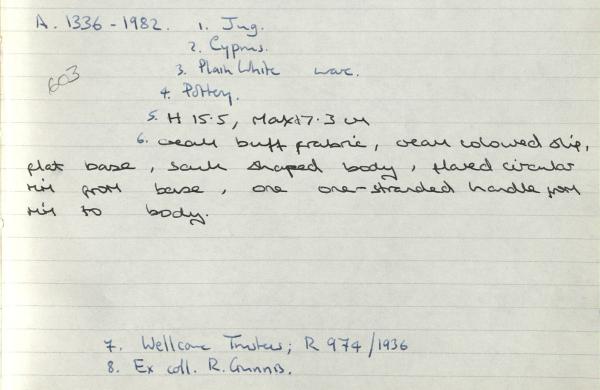 A. 1336 - 1982. 1. Jug.
2. Cyprus.
603
3. Plain White ware.
4. Pottery.
5. H 15.5, Max d 7.3 cm
6. cream buff fabric, cream coloured slip,
flat base, sack shaped body, flared circular
rim from base, one one-stranded handle from
rim to body.
7. Wellcome Trustees; R 974/1936
8. Ex coll. R. Gunnis.